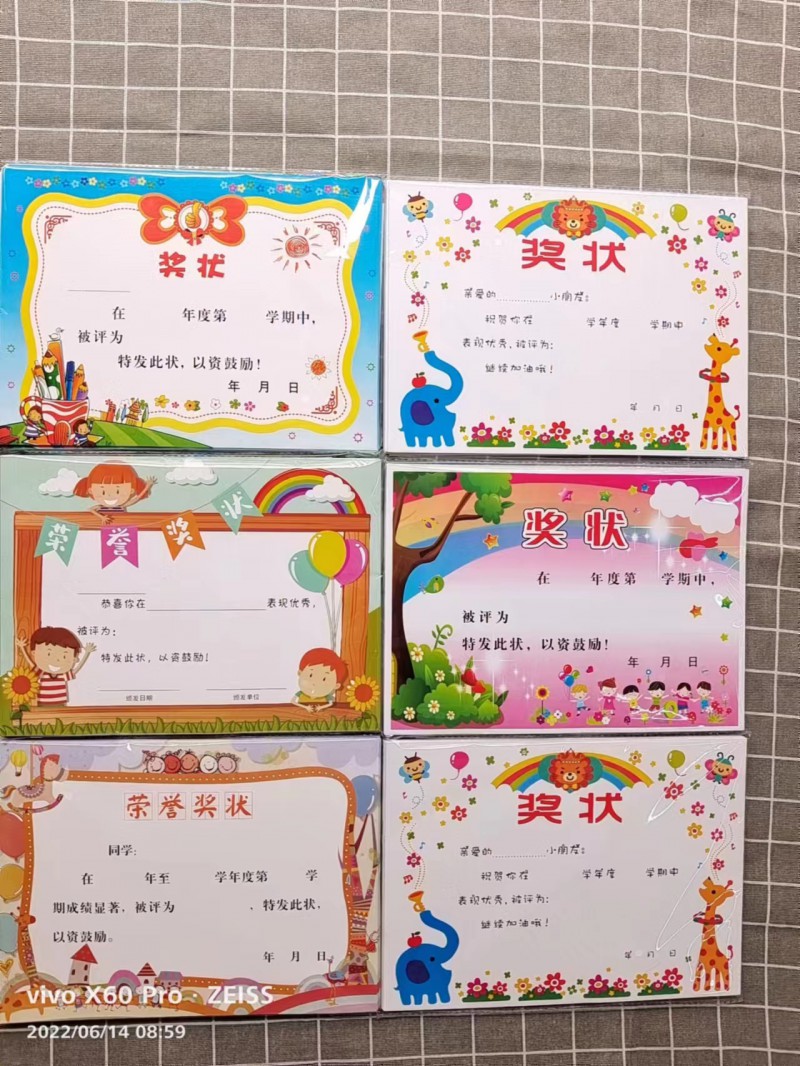 奖状
在 年度第 学期中，
被评为
特发此状，以资鼓励！
年 月 日
奖状
亲爱的 小朋友：
祝贺你在 学年度 学期中
表现优秀，被评为：
继续加油哦！
年 月 日
荣誉奖状
恭喜你在 表现优秀，
被评为：
特发此状，以资鼓励！
颁发日期 颁发单位
奖状
在 年度第 学期中，
被评为
特发此状，以资鼓励！
年 月 日
荣誉奖状
同学：
在 年至 学年度第 学
期成绩显著，被评为 、特发此状，
以资鼓励。
年 月 日
奖状
亲爱的 小朋友：
祝贺你在 学年度 学期中
表现优秀，被评为：
继续加油哦！
年 月 日
vivo X60 Pro · ZEISS
2022/06/14 08:59